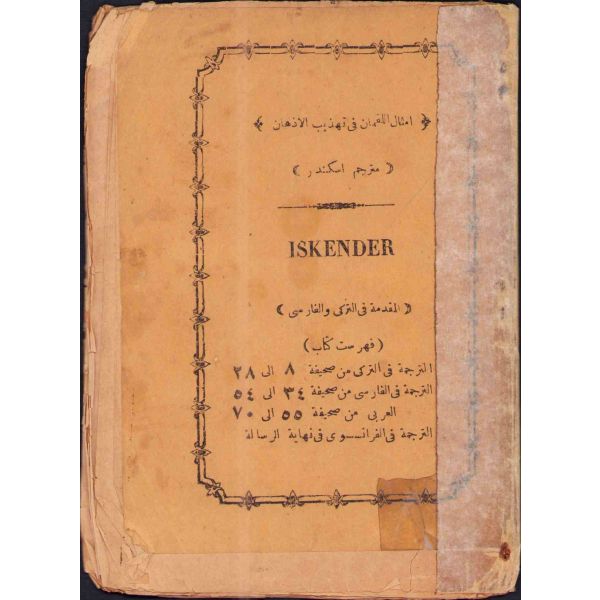 امثال اللقمان فى تهذيب الاذهان
( مترجم اسكندر )
ISKENDER
( المقدمة فى التركى والفارسى )
( فهرست كتاب )
الترجمة فى التركى من صحيفة ٨ الى ٢٨
الترجمة فى الفارسى من صحيفة ٣٤ الى ٥٤
العربى من صحيفة ٥٥ الى ٧٠
الترجمة فى الفرانسوى فى نهاية الرسالة